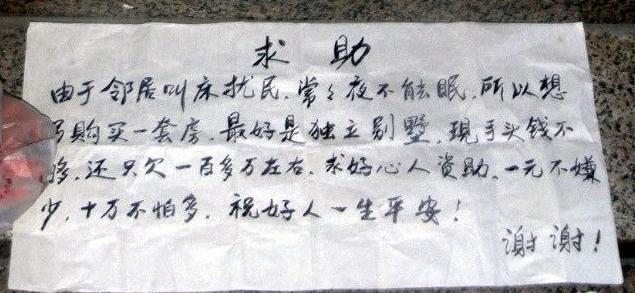 求助
由于邻居叫床扰民.常々夜不能眠.所以想
购买一套房.最好是独立别墅.现手头钱不
够.还只欠一百多万左右.求好心人资助.一元不嫌
少.十万不怕多.祝好人一生平安!
谢谢!